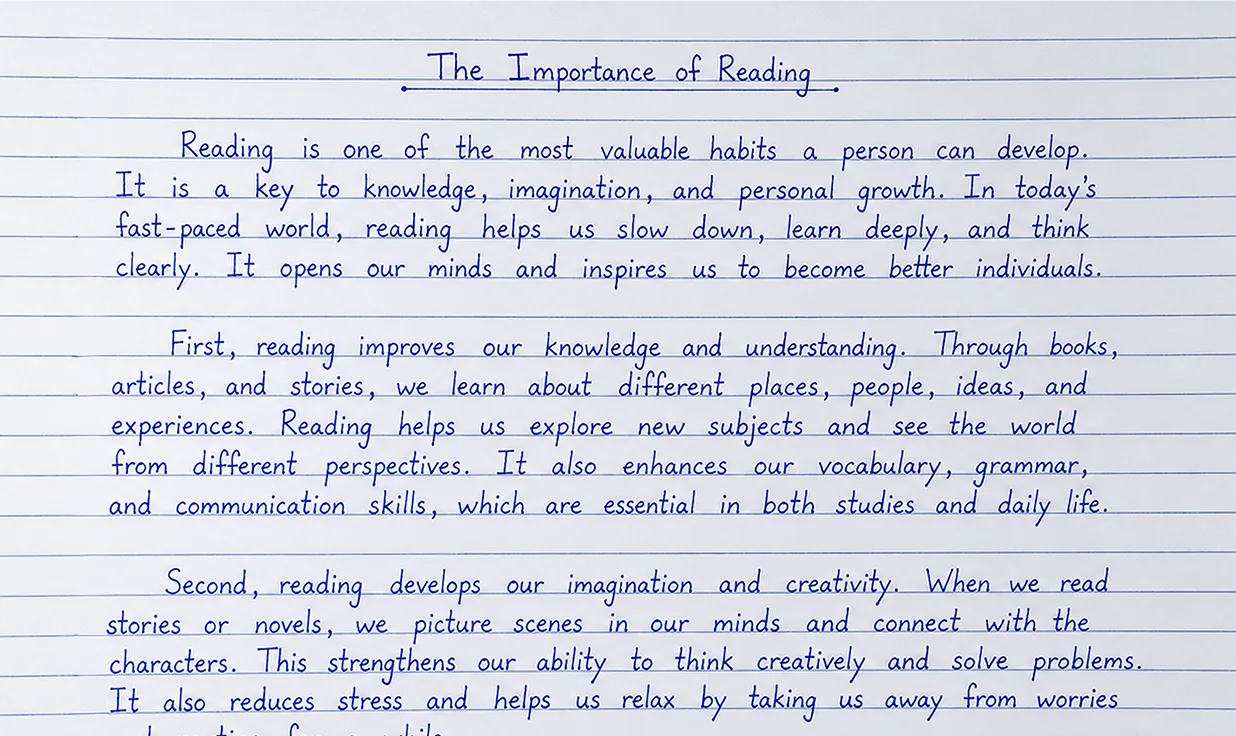 The Importance of Reading
Reading is one of the most valuable habits a person can develop.
It is a key to knowledge, imagination, and personal growth. In today's
fast-paced world, reading helps us slow down, learn deeply, and think
clearly. It opens our minds and inspires us to become better individuals.
First, reading improves our knowledge and understanding. Through books,
articles, and stories, we learn about different places, people, ideas, and
experiences. Reading helps us explore new subjects and see the world
from different perspectives. It also enhances our vocabulary, grammar,
and communication skills, which are essential in both studies and daily life.
Second, reading develops our imagination and creativity. When we read
stories or novels, we picture scenes in our minds and connect with the
characters. This strengthens our ability to think creatively and solve problems.
It also reduces stress and helps us relax by taking us away from worries